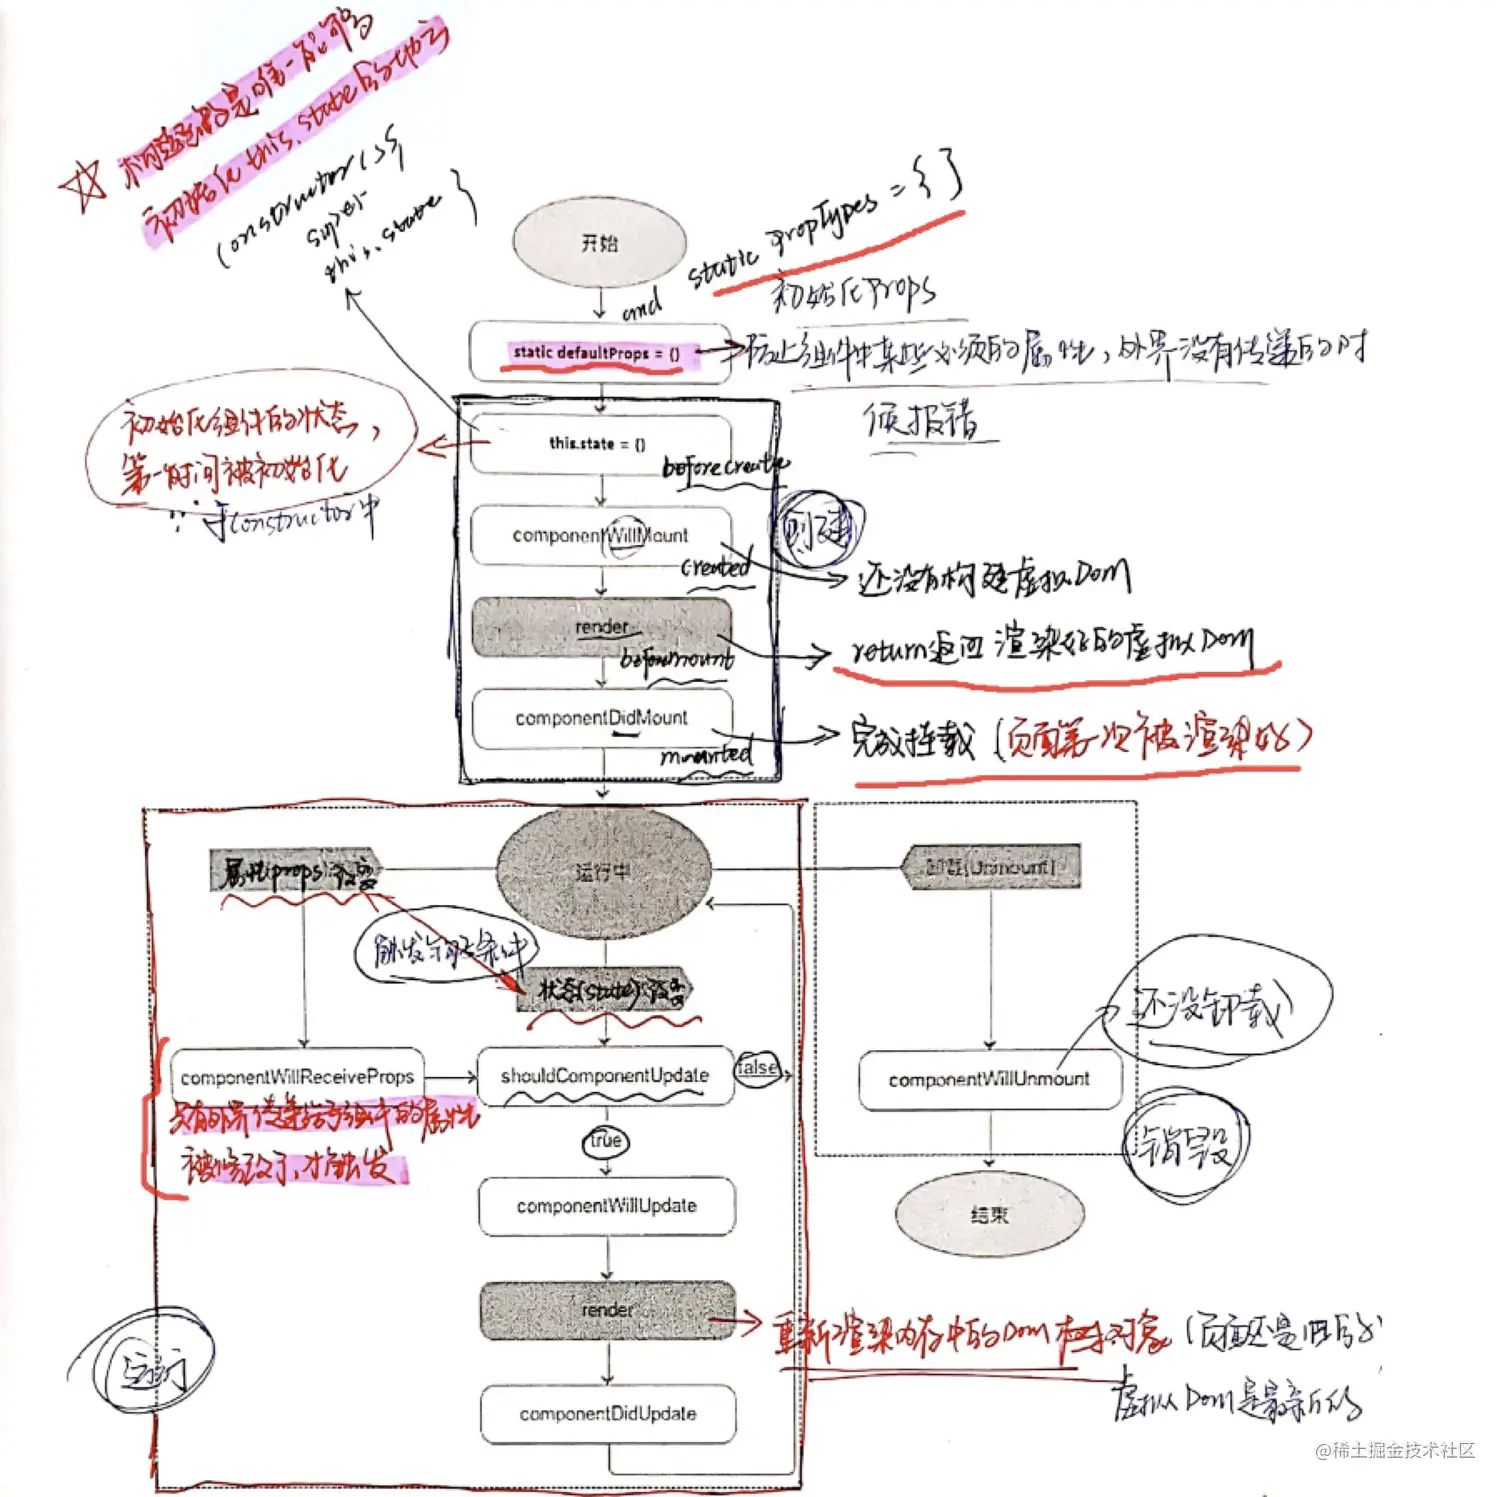 ☆ 构造函数是唯一能够
初始化 this.state 的地方
constructor(){
super
this.state }
开始
static propTypes = { }
and
初始化Props
static defaultProps = {}
防止组件中某些必须的属性，外界没有传递的时
候报错
初始化组件的状态，
第一时间被初始化
于constructor中
this.state = {}
beforecreate
创建
componentWillMount
created
还没有构建虚拟Dom
render
beforemount
return返回渲染好的虚拟Dom
componentDidMount
mounted
完成挂载（页面第一次被渲染好）
属性(props)改变
运行中
卸载(Unmount)
触发的条件
状态(state)改变
还没卸载
componentWillReceiveProps
shouldComponentUpdate
false
componentWillUnmount
只有外界传递给子组件的属性
被修改了，才触发
true
销毁
componentWillUpdate
结束
render
重新渲染内存中的Dom树对象（页面还是旧的
虚拟Dom是最新的
运行
componentDidUpdate
@稀土掘金技术社区